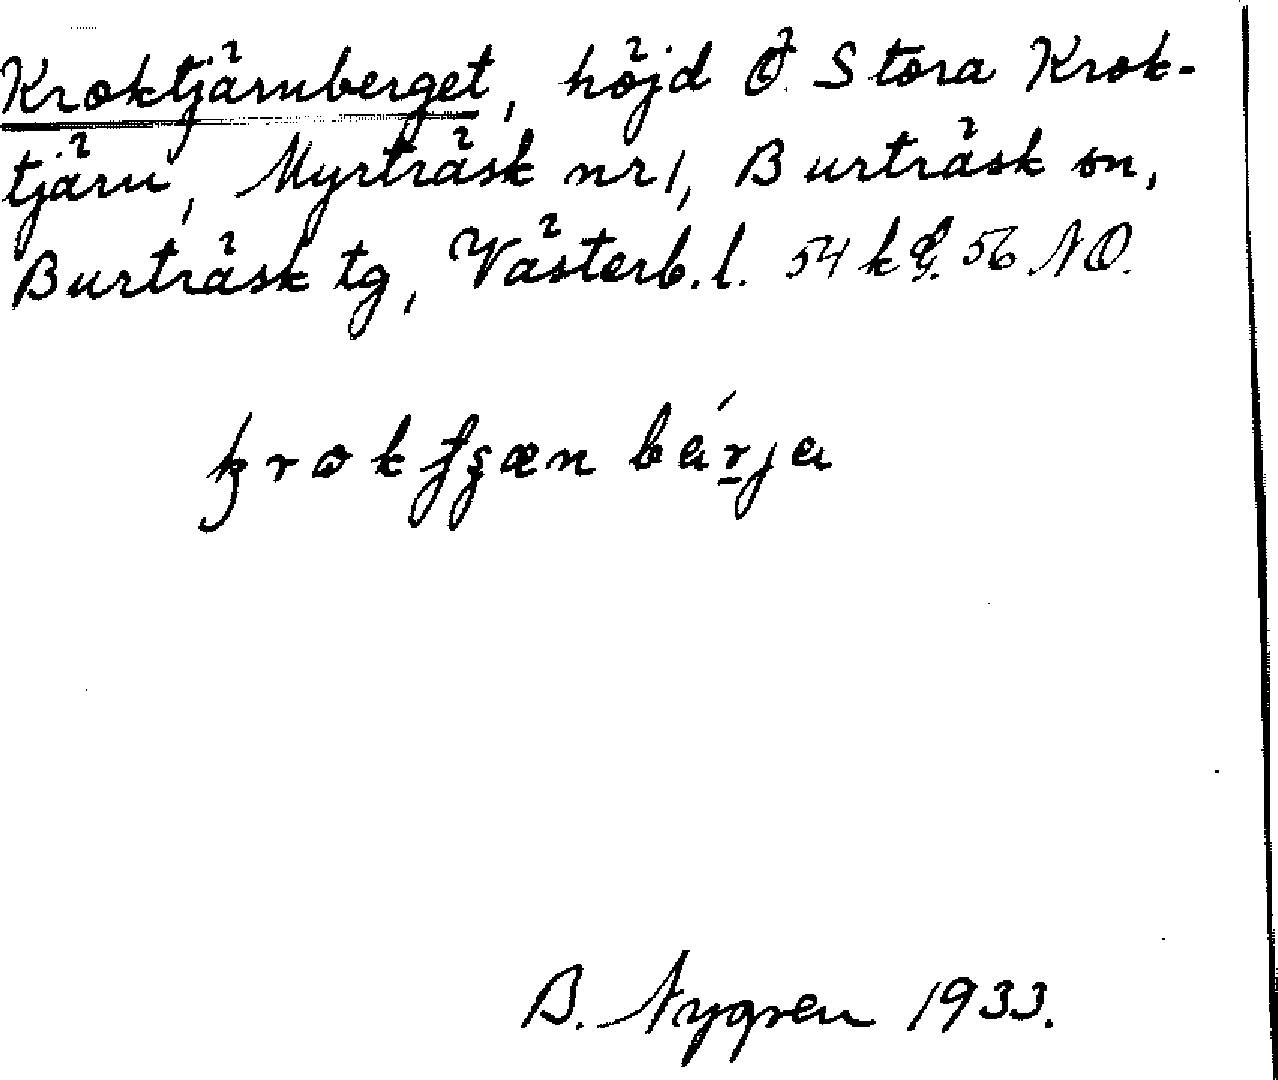 Kroktjärnberget, höjd Ö Stora Krok-
tjärn, Myrträsk nr 1, Burträsk sn,
Burträsk tg, Västerb. l. 54 k 56 NO.
bárja
B. Nygren 1933.